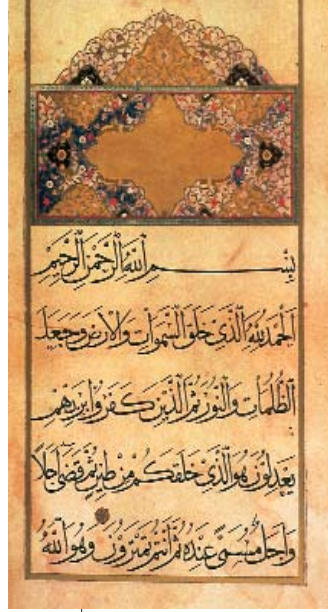 بِسْمِ اللَّهِ الرَّحْمَنِ الرَّحِيمِ
اَلْحَمْدُ لِلَّهِ الَّذِي خَلَقَ السَّمَوَاتِ وَالْاَرْضَ وَجَعَلَ
الظُّلُمَاتِ وَالنُّورَ ثُمَّ الَّذِينَ كَفَرُوا بِرَبِّهِمْ
يَعْدِلُونَ هُوَ الَّذِي خَلَقَكُمْ مِنْ طِينٍ ثُمَّ قَضَى اَجَلًا
وَاَجَلٌ مُسَمًّى عِنْدَهُ ثُمَّ اَنْتُمْ تَمْتَرُونَ وَهُوَ اللَّهُ